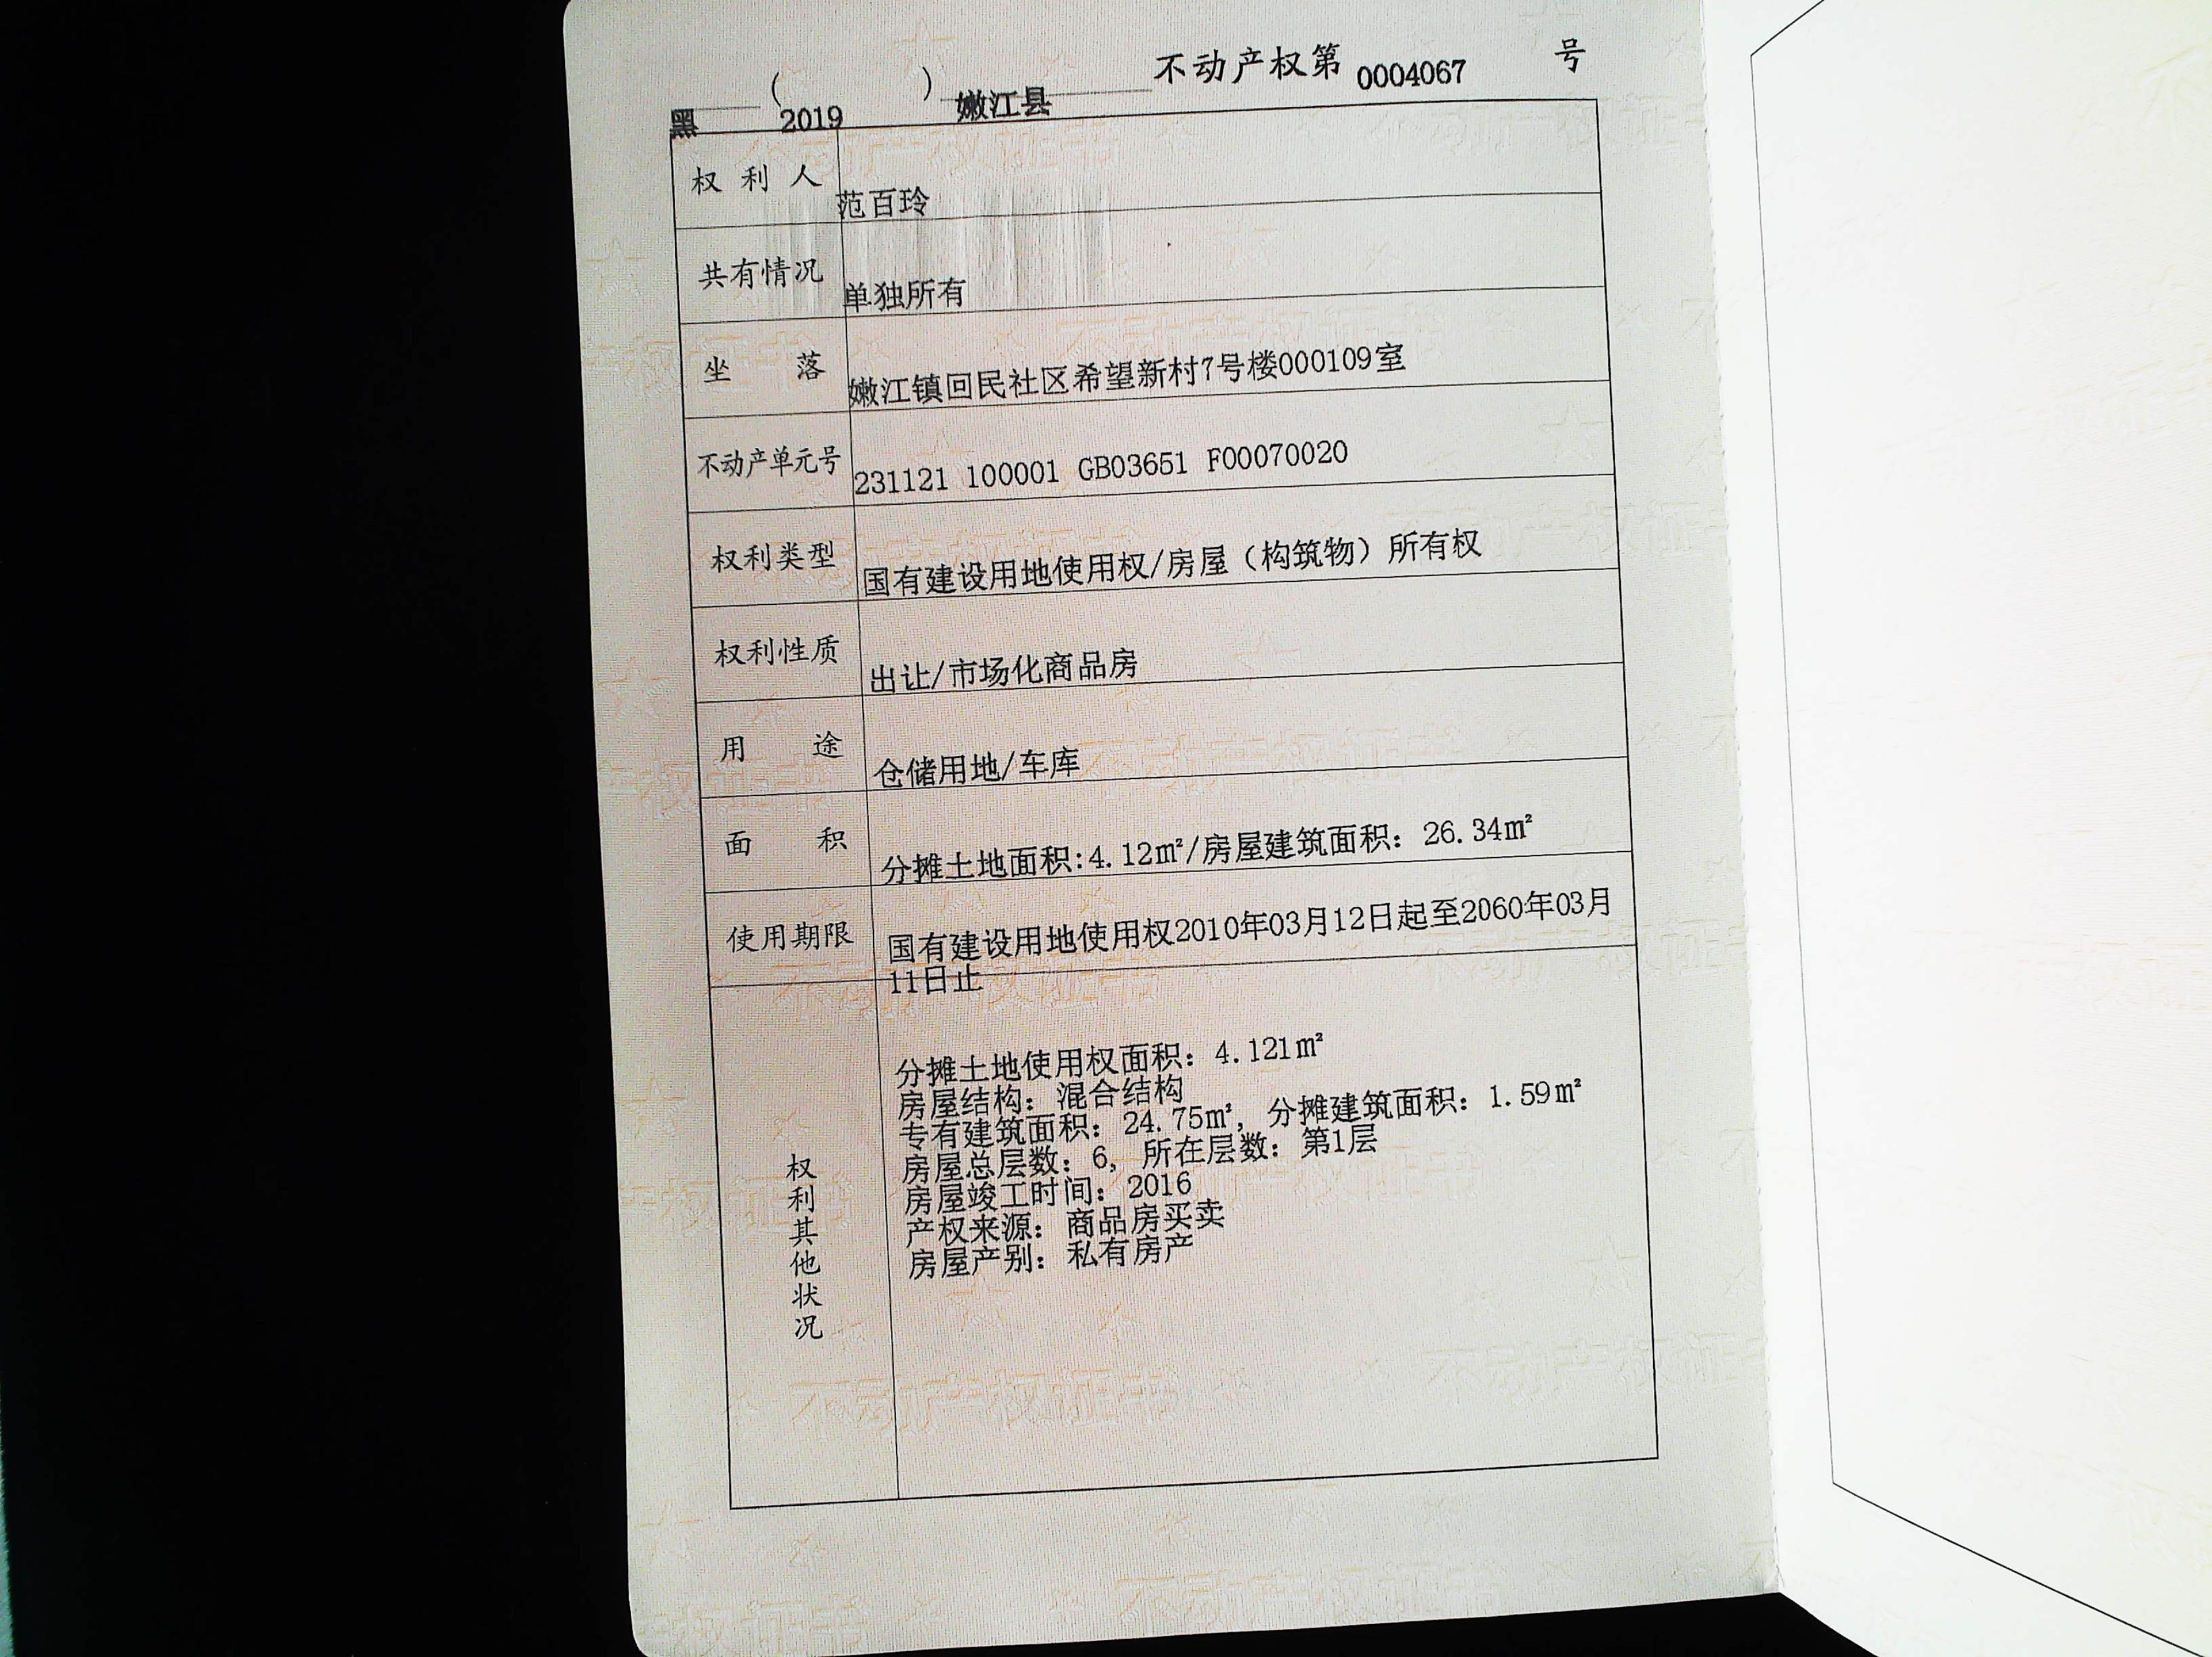 黑（2019）嫩江县不动产权第0004067号
权利人 范百玲
共有情况 单独所有
坐落 嫩江镇回民社区希望新村7号楼000109室
不动产单元号 231121 100001 GB03651 F00070020
权利类型 国有建设用地使用权/房屋（构筑物）所有权
权利性质 出让/市场化商品房
用途 仓储用地/车库
面积 分摊土地面积:4.12㎡/房屋建筑面积：26.34㎡
使用期限 国有建设用地使用权2010年03月12日起至2060年03月
11日止
权利其他状况
分摊土地使用权面积：4.121㎡
房屋结构：混合结构
专有建筑面积：24.75㎡，分摊建筑面积：1.59㎡
房屋总层数：6，所在层数：第1层
房屋竣工时间：2016
产权来源：商品房买卖
房屋产别：私有房产